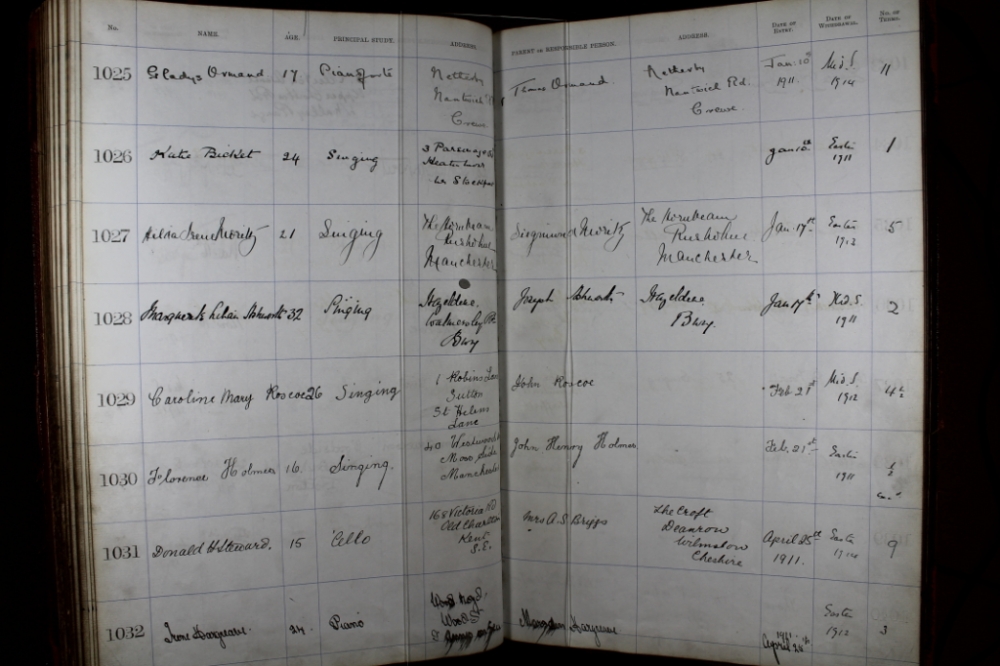 No. NAME. AGE. PRINCIPAL STUDY. ADDRESS. PARENT OR RESPONSIBLE PERSON. ADDRESS. DATE OF ENTRY. DATE OF WITHDRAWAL. NO. OF TERMS.
1025 Gladys Ormand 17 Pianoforte Netherby Ormand. Netherby Jan. 10th Mid.S. 11
Nantwich Nantwich Rd. 1911. 1914
Crewe Crewe.
1026 Katie Bicket 24 Singing 3 Jan 10th Easter 1
Heaton Moor 1911
Nr Stockport
1027 Irene Moritz 21 Singing The Hornbeam Moritz The Hornbeam Jan. 17th Easter 5
Rusholme Rusholme 1912
Manchester Manchester
1028 Lilian Ashworth 32 Singing Hazeldene. Joseph Ashworth Hazeldene. Jan 17th Mid.S. 2
Bury Bury. 1911
1029 Caroline Mary Roscoe 26 Singing 1 Robins Lane John Roscoe Feb 21st Mid.S. 4½
Sutton 1912
St Helens
Lane
1030 Florence Holmes 16. Singing. 40 John Henry Holmes Feb. 21st Easter ½
Moss Side 1911
Manchester
1031 Donald H Steward. 15 'Cello 168 Victoria Rd Mrs A.S. Briggs The Croft April 25th Easter 9
Old Charlton Deanrow 1911. 1914
Kent Wilmslow
S.E. Cheshire
1032 Irene Hargreave 24 Piano Hargreave 1911 Easter 3
Wood St April 26th 1912